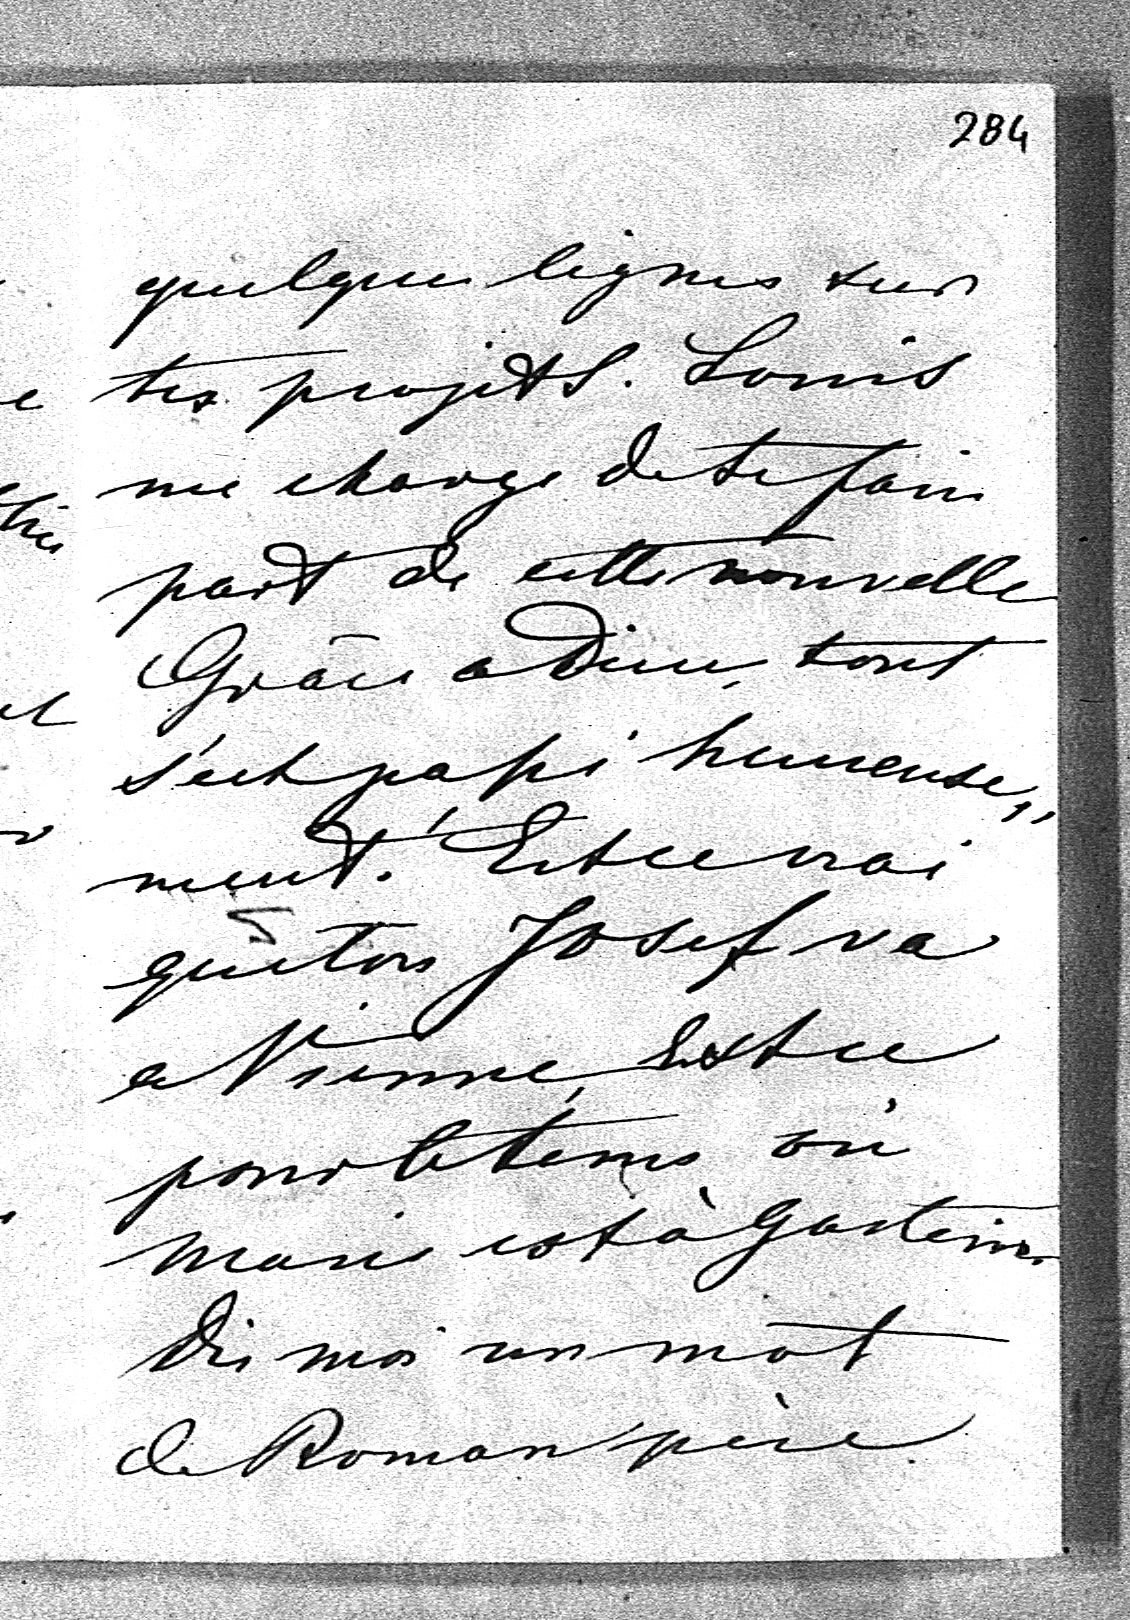 284
quelques lignes sur
tes projets. Louis
me charge de te faire
part de cette nouvelle
Grâce a Dieu, tout
s'est passé heureuse,,
ment. Est ce vrai
que ton Josef va
a Vienne, Est ce
pour le tems où
Marie est à Gastein.
Dis moi un mot
de Roman père